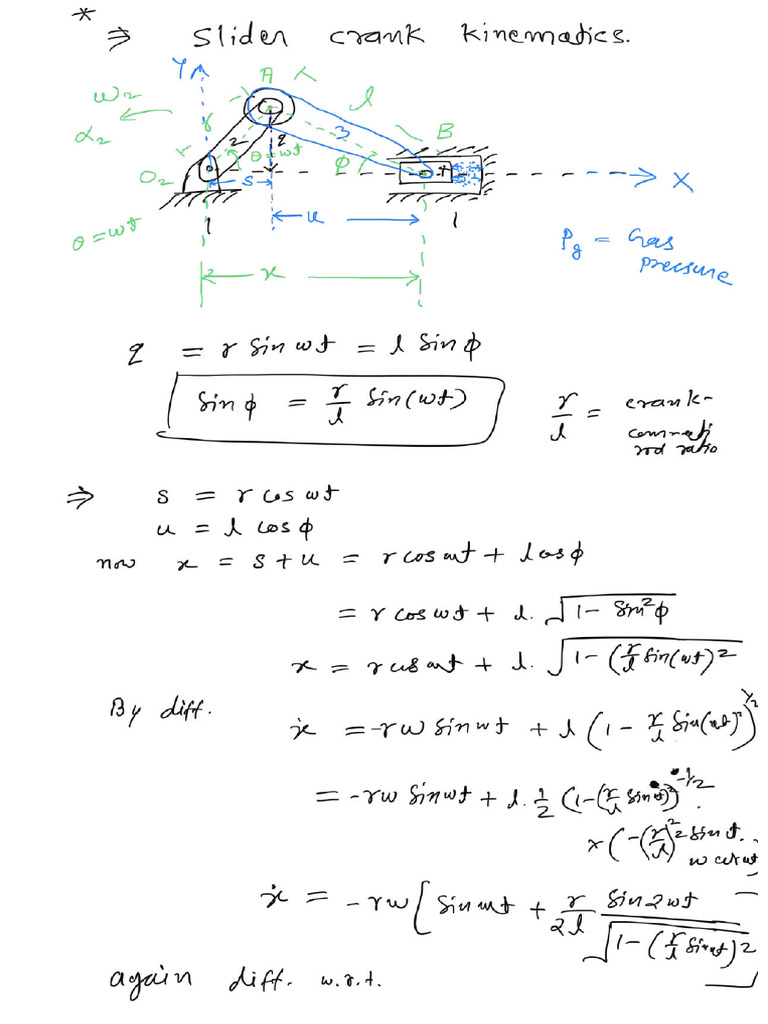 * ⇒ Slider crank kinematics.
Y
A
ω2
α2
r
l
B
2
3
4
q
θ=ωt
φ
O2
s
X
θ=ωt
1
u
1
x
Pg = Gas
pressure
q = r sin ωt = l sin φ
sin φ = r/l sin(ωt)
r/l = crank-
rod ratio
⇒ s = r cos ωt
u = l cos φ
now x = s + u = r cos ωt + l cos φ
= r cos ωt + l. √(1 - sin²φ)
x = r cos ωt + l. √(1 - (r/l sin(ωt))²)
By diff. ẋ = -rω sin ωt + l (1 - r/l sin(ωt)²)^1/2
= -rω sin ωt + l. 1/2 (1-(r/l sin ωt)²)^-1/2 .
x (-(r/l)² 2 sin t.
ω cos ωt
ẋ = -rω [ sin ωt + r/2l sin 2ωt / √(1 - (r/l sin ωt)²) ]
again diff. w.r.t.